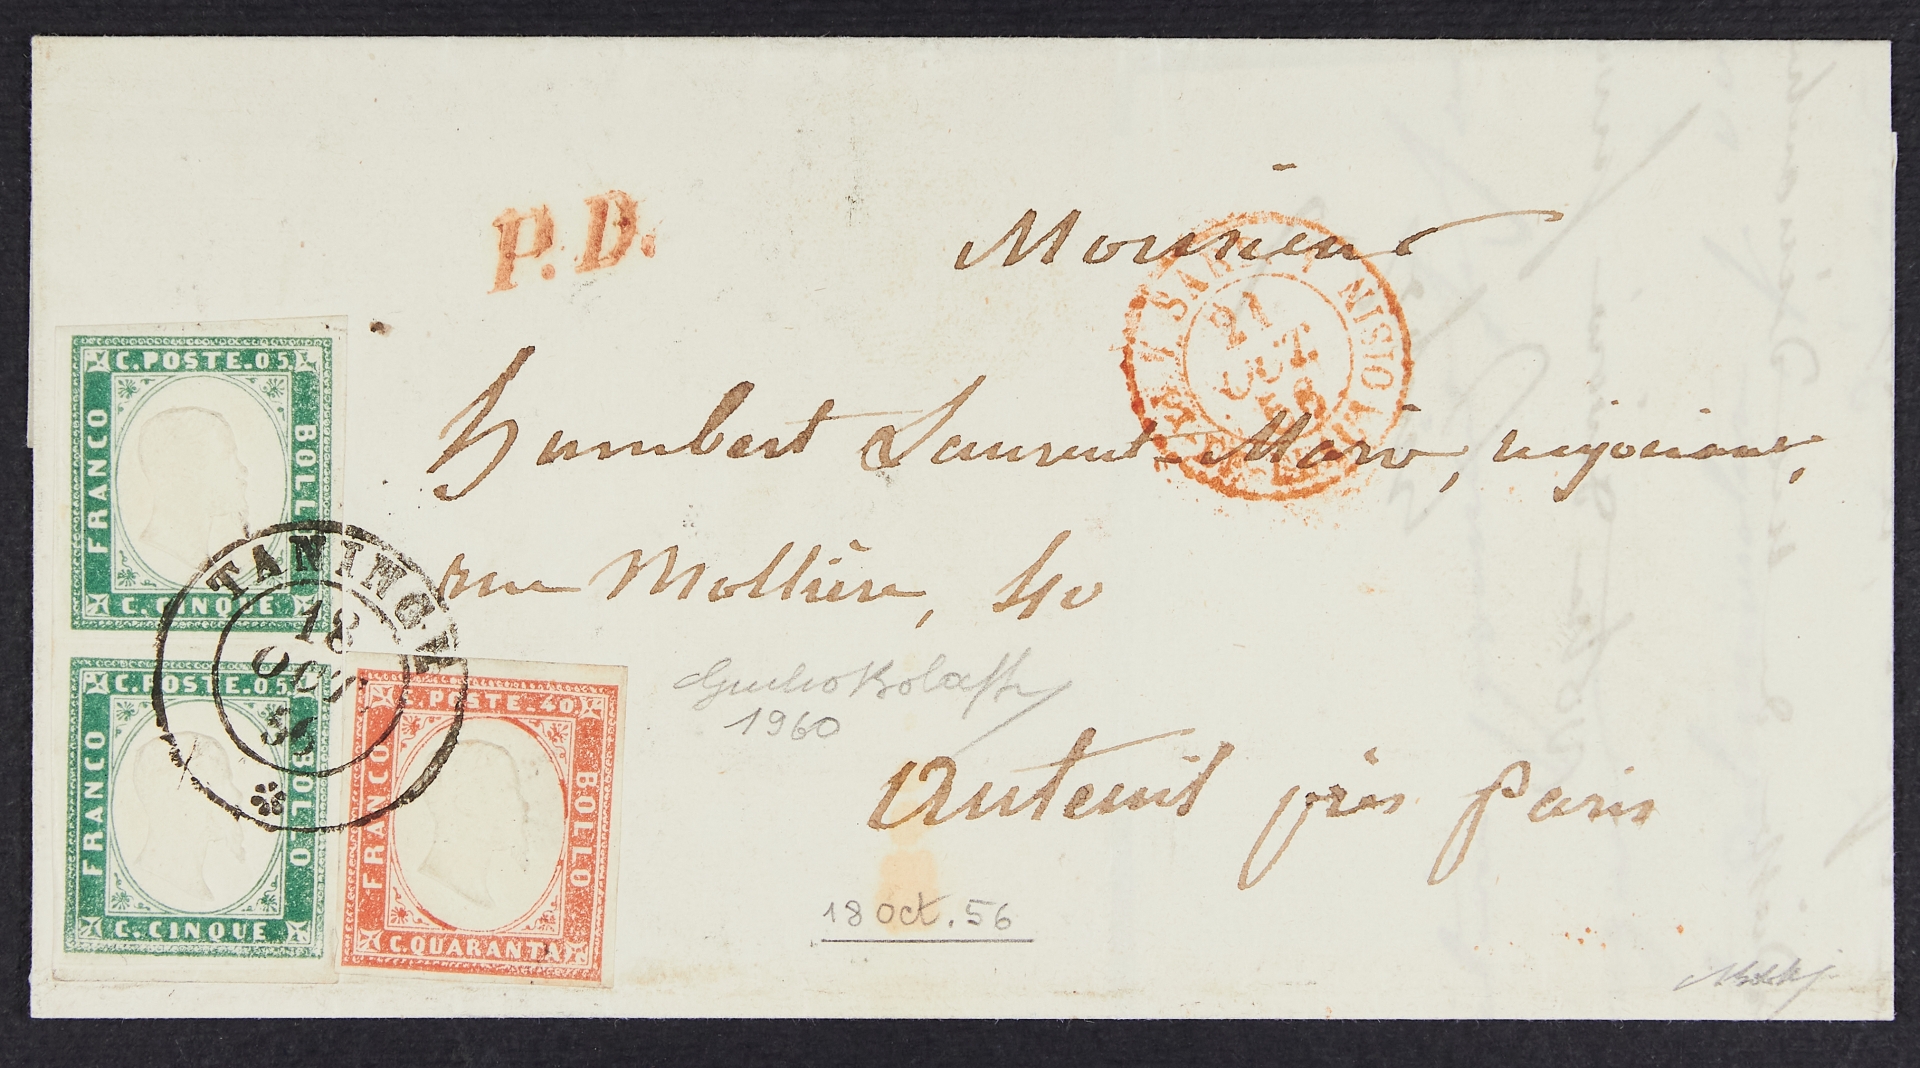 P.D.
Monsieur
SARD
21
OCT.
56
Humbert Laurent-Marie, négociant,
rue Mollière, 40
Auteuil près Paris
C. POSTE. 05
FRANCO
BOLLO
C. CINQUE
TANINGE
18
OCT
56
C. POSTE. 05
FRANCO
BOLLO
C. CINQUE
C. POSTE. 40
FRANCO
BOLLO
C. QUARANTA
1960
18 oct. 56